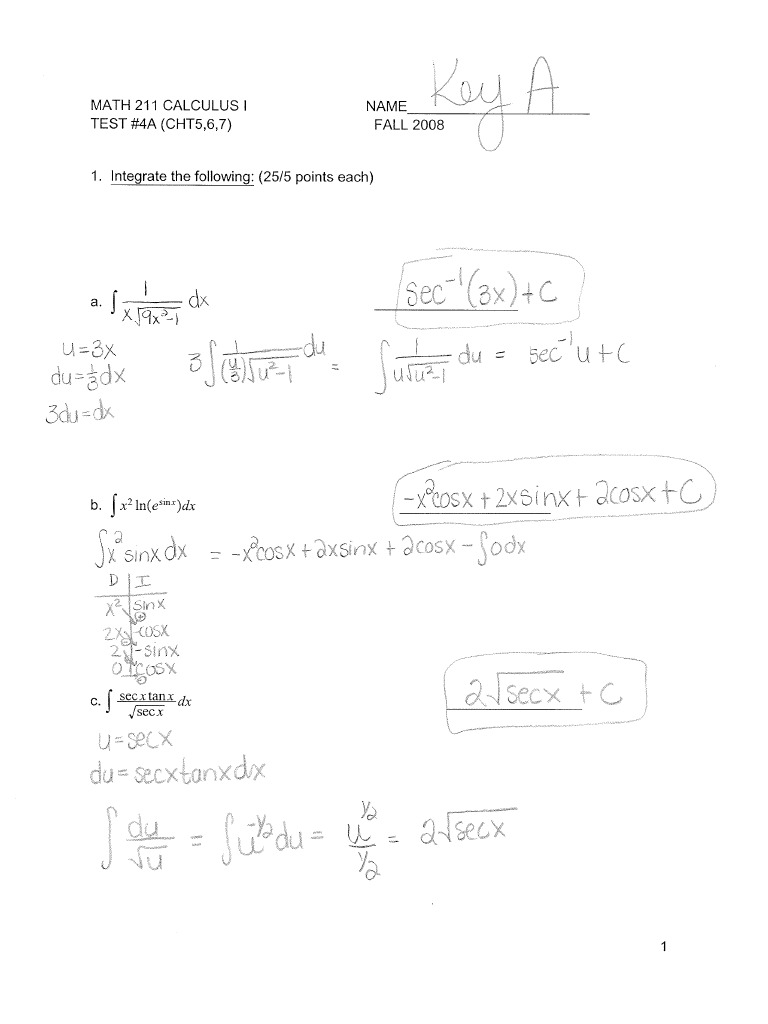 MATH 211 CALCULUS I NAME Key A
TEST #4A (CHT5,6,7) FALL 2008
1. Integrate the following: (25/5 points each)
a. ∫ 1/(x√(9x²-1)) dx sec⁻¹(3x) + C
u = 3x 3∫ 1/((u/3)√(u²-1)) du = ∫ 1/(u√(u²-1)) du = sec⁻¹ u + C
du = 1/3 dx
3du = dx
b. ∫ x² ln(e^(sin x)) dx -x²cosx + 2xsinx + 2cosx + C
∫ x² sinx dx = -x²cosx + 2xsinx + 2cosx - ∫ 0dx
D | I
x² | sinx
+
2x | -cosx
-
2 | -sinx
+
0 | cosx
-
c. ∫ (sec x tan x)/√(sec x) dx 2√(secx) + C
u = secx
du = secxtanxdx
∫ du/√u = ∫ u^(-1/2) du = u^(1/2)/(1/2) = 2√(secx)
1